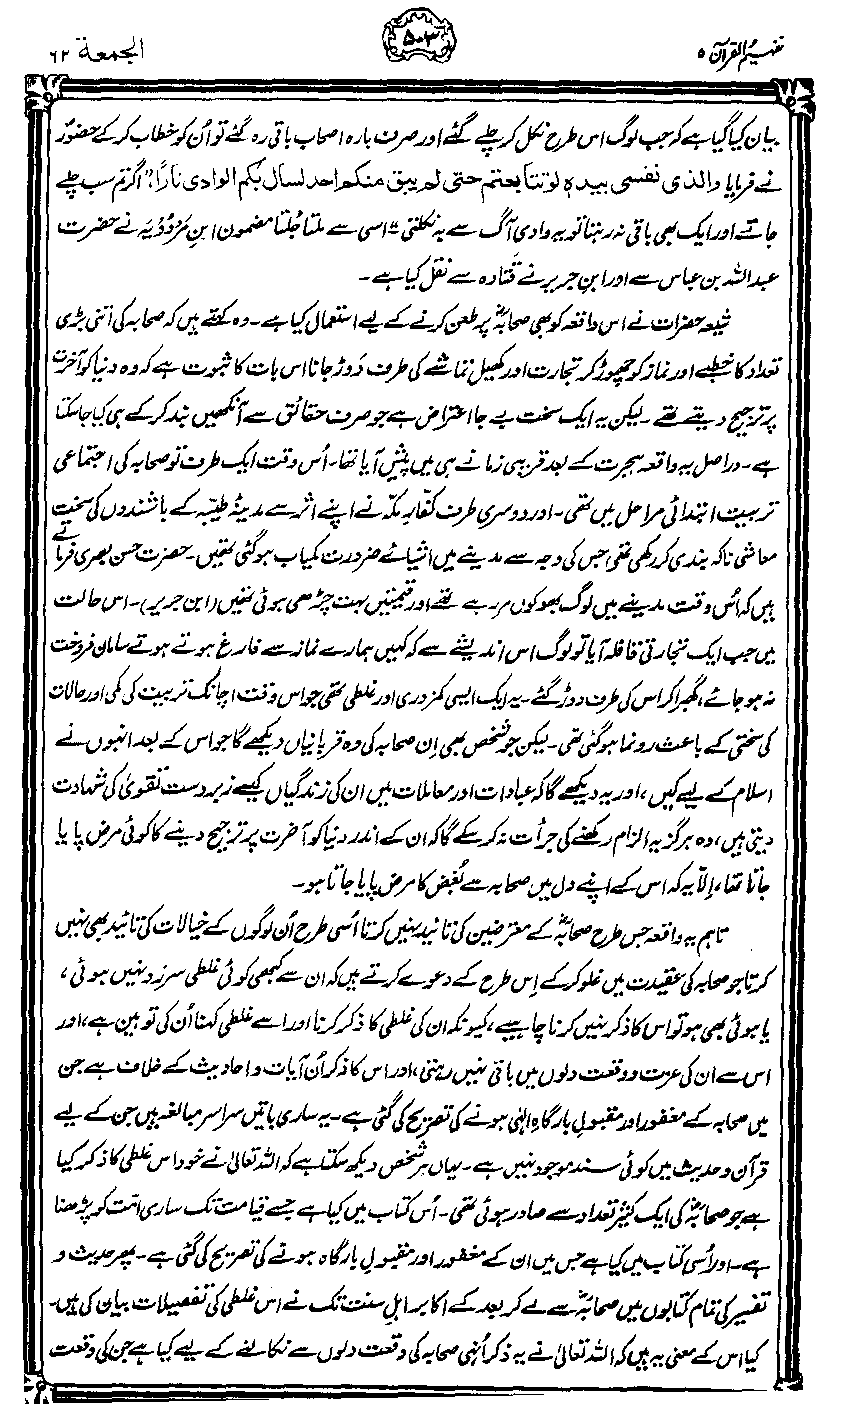 تفہیم القرآن ۵
۵۰۳
الجمعة ۶۲
بیان کیا گیا ہے کہ جب لوگ اس طرح نکل کر چلے گئے اور صرف بارہ اصحاب باقی رہ گئے تو اُن کو خطاب کر کے حضورؐ
نے فرمایا والذی نفسی بیدہ لو تتابعتم حتی لم یبق منکم احد لسال بکم الوادی نارًا، "اگر تم سب چلے
جاتے اور ایک بھی باقی نہ رہتا تو یہ وادی آگ سے بہ نکلتی"۔ اسی سے ملتا جُلتا مضمون ابنِ مَرْدُوْیَہ نے حضرت
عبداللہ بن عباس سے اور ابن جریر نے قَتادہ سے نقل کیا ہے۔
شیعہ حضرات نے اس واقعہ کو بھی صحابہؓ پر طعن کرنے کے لیے استعمال کیا ہے۔ وہ کہتے ہیں کہ صحابہ کی اتنی بڑی
تعداد کا خطبے اور نماز کو چھوڑ کر تجارت اور کھیل تماشے کی طرف دَوڑ جانا اس بات کا ثبوت ہے کہ وہ دنیا کو آخرت
پر ترجیح دیتے تھے۔ لیکن یہ ایک سخت بے جا اعتراض ہے جو صرف حقائق سے آنکھیں بند کر کے ہی کیا جا سکتا
ہے۔ دراصل یہ واقعہ ہجرت کے بعد قریبی زمانے ہی میں پیش آیا تھا۔ اُس وقت ایک طرف تو صحابہ کی اجتماعی
تربیت ابتدائی مراحل میں تھی۔ اور دوسری طرف کفّارِ مکّہ نے اپنے اثر سے مدینۂ طیبہ کے باشندوں کی سخت
معاشی ناکہ بندی کر رکھی تھی جس کی وجہ سے مدینے میں اشیائے ضرورت کمیاب ہو گئی تھیں۔ حضرت حسن بصری فرماتے
ہیں کہ اُس وقت مدینے میں لوگ بھوکوں مر رہے تھے اور قیمتیں بہت چڑھی ہوئی تھیں (ابن جریر)۔ اس حالت
میں جب ایک تجارتی قافلہ آیا تو لوگ اس اندیشے سے کہ کہیں ہمارے نماز سے فارغ ہوتے ہوتے سامان فروخت
نہ ہو جائے، گھبرا کر اس کی طرف دوڑ گئے۔ یہ ایک ایسی کمزوری اور غلطی تھی جو اس وقت اچانک تربیت کی کمی اور حالات
کی سختی کے باعث رونما ہو گئی تھی۔ لیکن جو شخص بھی اِن صحابہ کی وہ قربانیاں دیکھے گا جو اس کے بعد انہوں نے
اسلام کے لیے کیں، اور یہ دیکھے گا کہ عبادات اور معاملات میں ان کی زندگیاں کیسے زبردست تقویٰ کی شہادت
دیتی ہیں، وہ ہرگز یہ الزام رکھنے کی جرأت نہ کر سکے گا کہ ان کے اندر دنیا کو آخرت پر ترجیح دینے کا کوئی مرض پایا
جاتا تھا، اِلّا یہ کہ اس کے اپنے دل میں صحابہ سے بُغض کا مرض پایا جاتا ہو۔
تاہم یہ واقعہ جس طرح صحابہؓ کے معترضین کی تائید نہیں کرتا اُسی طرح اُن لوگوں کے خیالات کی تائید بھی نہیں
کرتا جو صحابہ کی عقیدت میں غلو کر کے اِس طرح کے دعوے کرتے ہیں کہ ان سے کبھی کوئی غلطی سرزد نہیں ہوئی،
یا ہوئی بھی ہو تو اس کا ذکر نہیں کرنا چاہیے، کیونکہ ان کی غلطی کا ذکر کرنا اور اسے غلطی کہنا اُن کی توہین ہے، اور
اس سے ان کی عزت و وقعت دلوں میں باقی نہیں رہتی، اور اس کا ذکر اُن آیات و احادیث کے خلاف ہے جن
میں صحابہ کے مغفور اور مقبولِ بارگاہِ الٰہی ہونے کی تصریح کی گئی ہے۔ یہ ساری باتیں سراسر مبالغہ ہیں جن کے لیے
قرآن و حدیث میں کوئی سند موجود نہیں ہے۔ یہاں ہر شخص دیکھ سکتا ہے کہ اللہ تعالیٰ نے خود اس غلطی کا ذکر کیا
ہے جو صحابہؓ کی ایک کثیر تعداد سے صادر ہوئی تھی۔ اُس کتاب میں کیا ہے جسے قیامت تک ساری امت کو پڑھنا
ہے۔ اور اُسی کتاب میں کیا ہے جس میں ان کے مغفور اور مقبولِ بارگاہ ہونے کی تصریح کی گئی ہے۔ پھر حدیث و
تفسیر کی تمام کتابوں میں صحابہؓ سے لے کر بعد کے اکابر اہلِ سنت تک نے اس غلطی کی تفصیلات بیان کی ہیں۔
کیا اس کے معنی یہ ہیں کہ اللہ تعالیٰ نے یہ ذکر اُنہی صحابہ کی وقعت دلوں سے نکالنے کے لیے کیا ہے جن کی وقعت